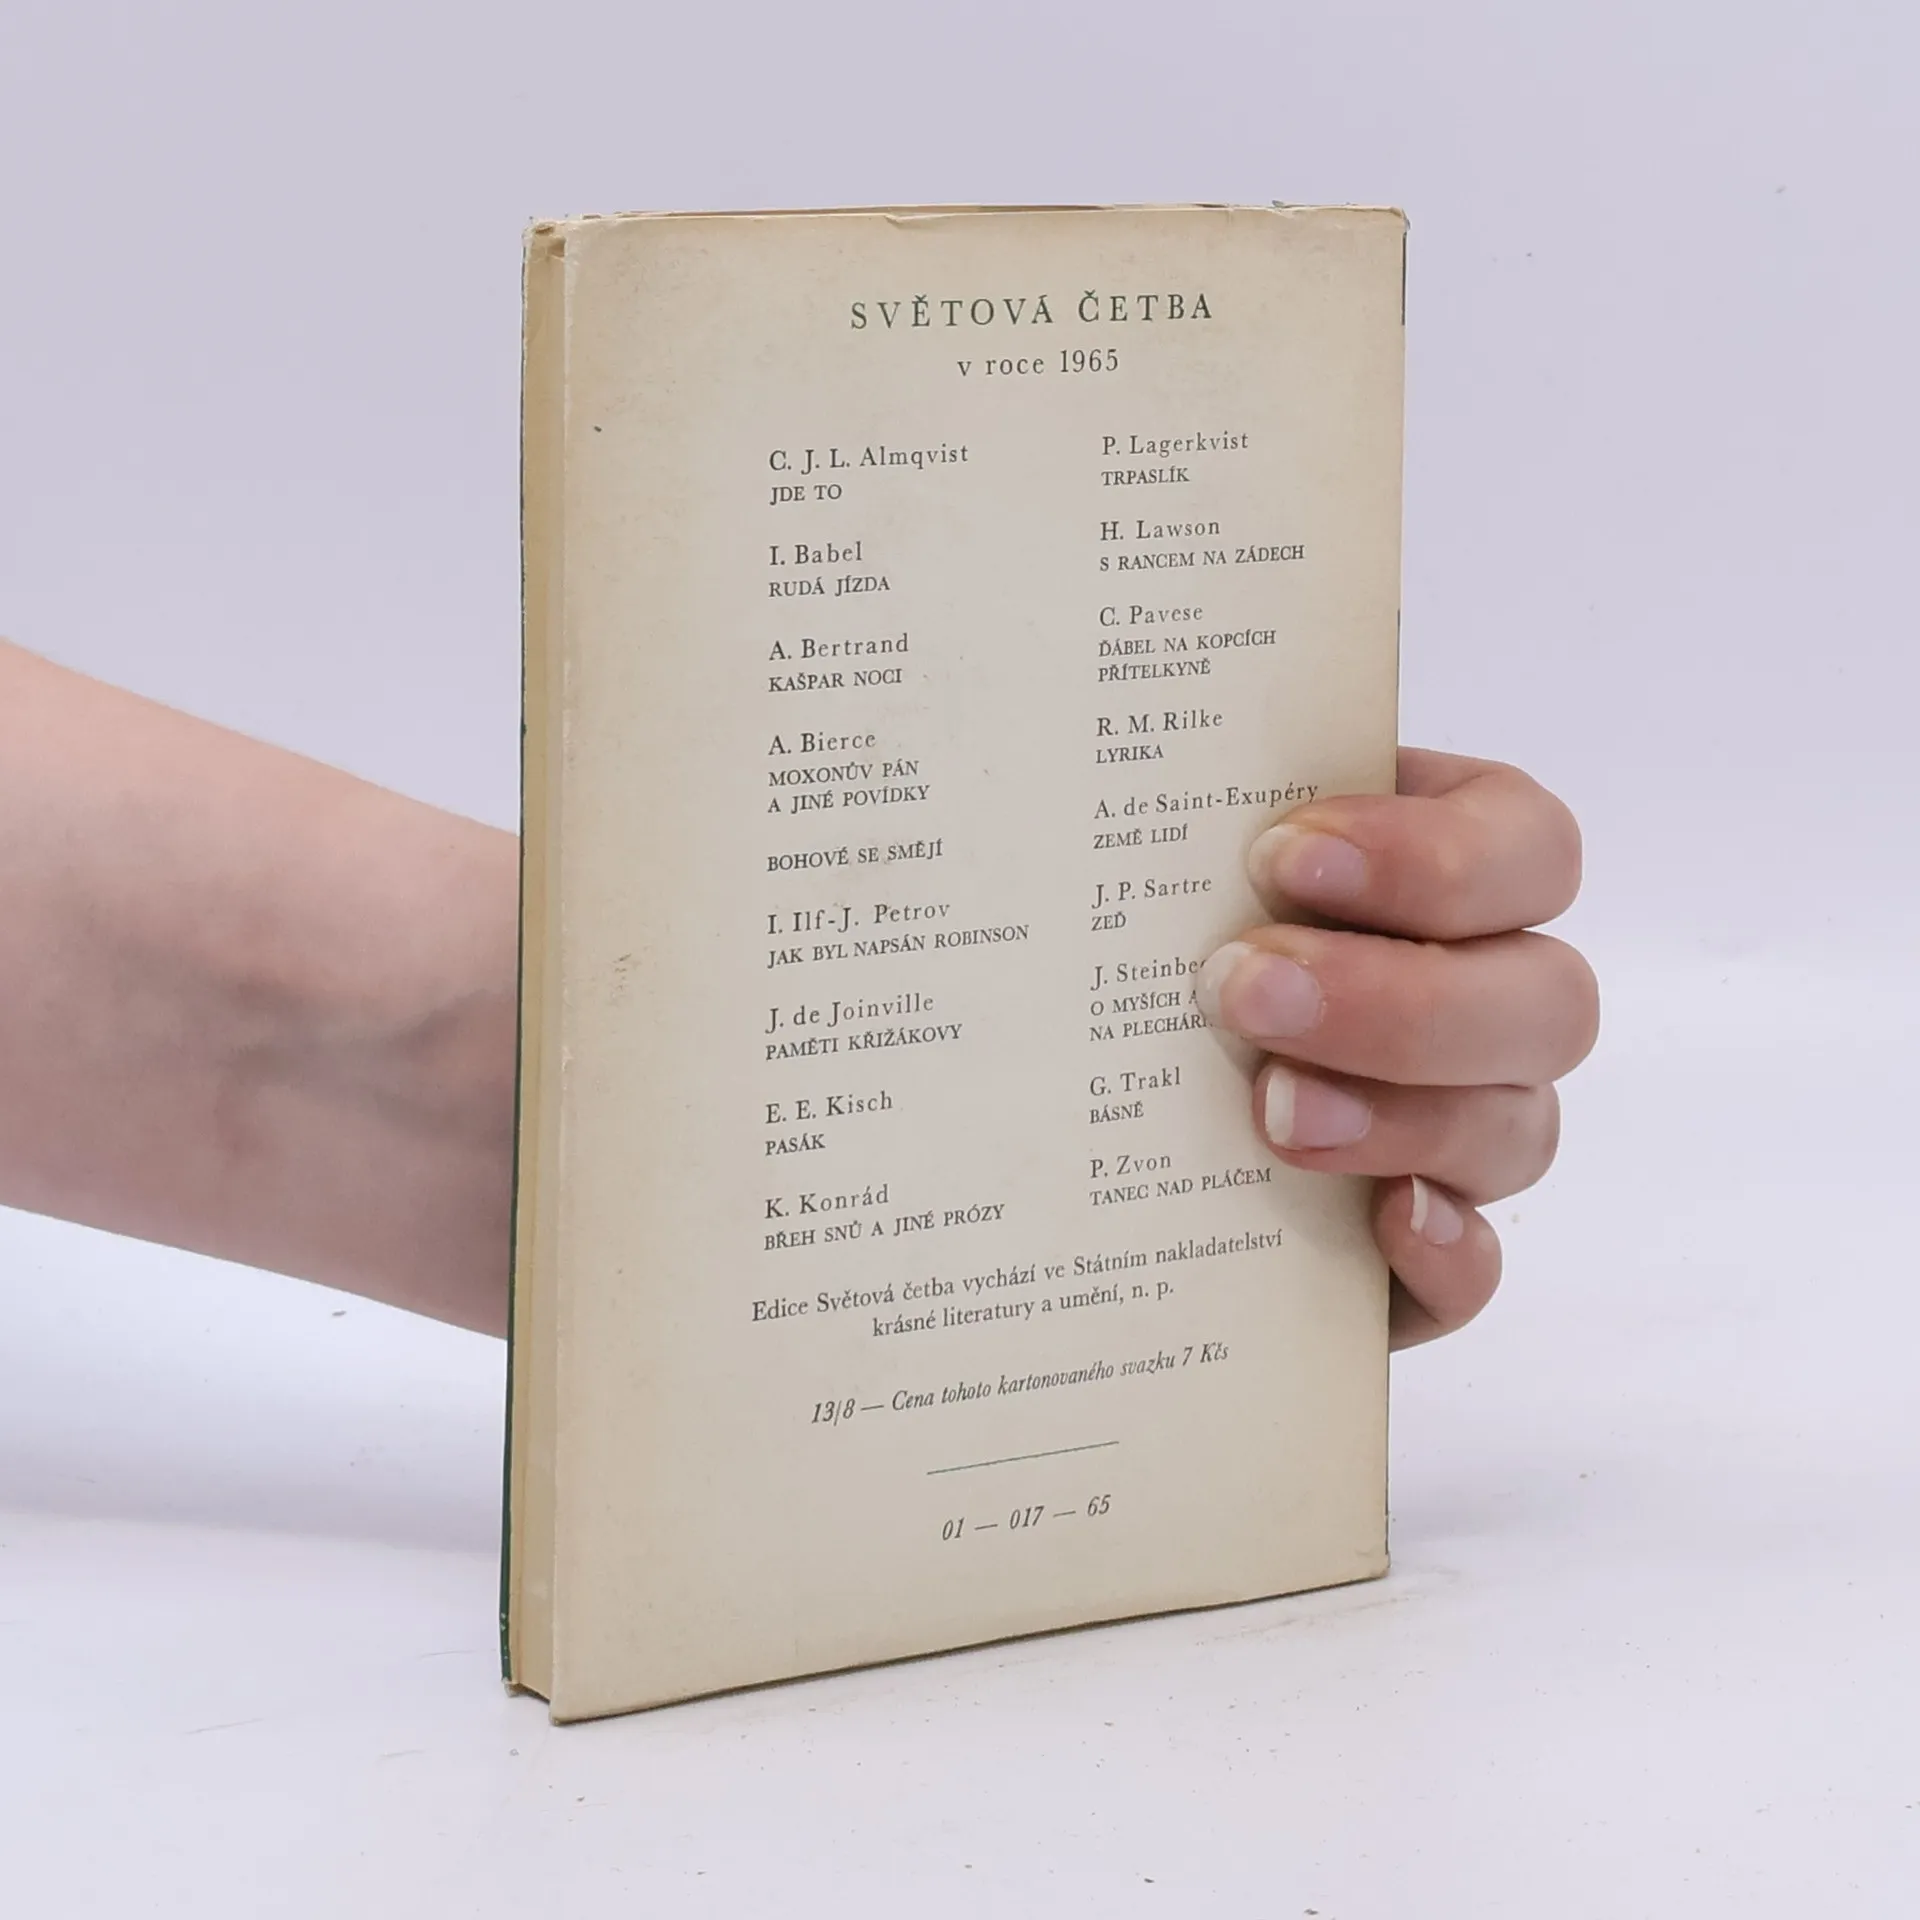 SVĚTOVÁ ČETBA
v roce 1965
C. J. L. Almqvist
JDE TO
I. Babel
RUDÁ JÍZDA
A. Bertrand
KAŠPAR NOCI
A. Bierce
MOXONŮV PÁN
A JINÉ POVÍDKY
BOHOVÉ SE SMĚJÍ
I. Ilf-J. Petrov
JAK BYL NAPSÁN ROBINSON
J. de Joinville
PAMĚTI KŘIŽÁKOVY
E. E. Kisch
PASÁK
K. Konrád
BŘEH SNŮ A JINÉ PRÓZY
P. Lagerkvist
TRPASLÍK
H. Lawson
S RANCEM NA ZÁDECH
C. Pavese
ĎÁBEL NA KOPCÍCH
PŘÍTELKYNĚ
R. M. Rilke
LYRIKA
A. de Saint-Exupéry
ZEMĚ LIDÍ
J. P. Sartre
ZEĎ
J.
O MYŠÍCH A
NA
G. Trakl
BÁSNĚ
P. Zvon
TANEC NAD PLÁČEM
Edice Světová četba vychází ve Státním nakladatelství
krásné literatury a umění, n. p.
13/8 — Cena tohoto kartonovaného svazku 7 Kčs
01 — 017 — 65